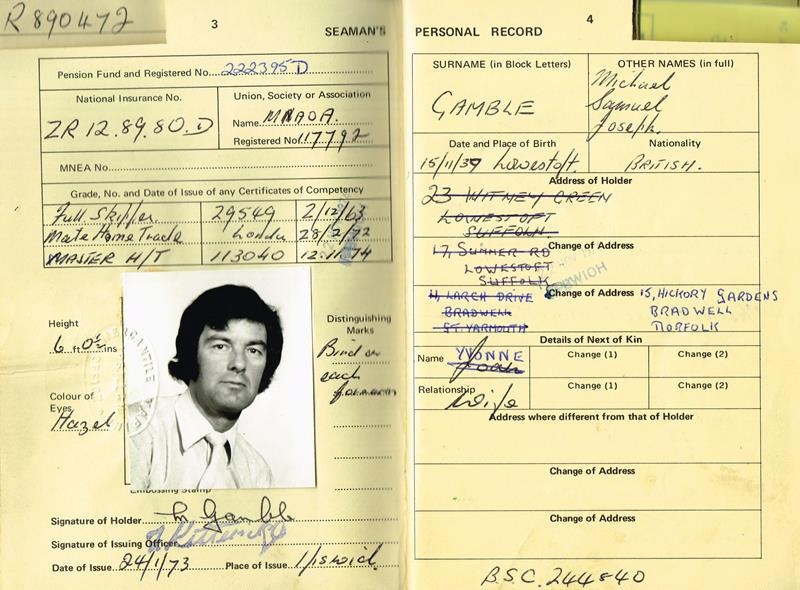 R 890472
3
SEAMAN'S
Pension Fund and Registered No. 222395 D
National Insurance No.
ZR 12.89.80.D
Union, Society or Association
Name MNAOA.
Registered No. 117792
MNEA No.
Grade, No. and Date of Issue of any Certificates of Competency
Full Skipper 29549 2/12/63
Mate Home Trade London 28/2/72
MASTER H/T 113040 12.11.74
Height
6 ft 0½ ins
Colour of
Eyes
Hazel
Distinguishing
Marks
Bird on
each
forearm
Embossing Stamp
Signature of Holder M Gamble
Signature of Issuing Officer
Date of Issue 24/1/73 Place of Issue Ipswich
4
PERSONAL RECORD
SURNAME (in Block Letters)
GAMBLE
OTHER NAMES (in full)
Michael
Samuel
Joseph.
Date and Place of Birth
15/11/39 Lowestoft.
Nationality
BRITISH.
Address of Holder
23 WITNEY GREEN
LOWESTOFT
SUFFOLK.
Change of Address
17, SUMMER RD
LOWESTOFT
SUFFOLK
Change of Address
11, LARCH DRIVE
BRADWELL
GT. YARMOUTH
15, HICKORY GARDENS
BRADWELL
NORFOLK
Details of Next of Kin
Name YVONNE
Joan
Change (1)
Change (2)
Relationship Wife
Change (1)
Change (2)
Address where different from that of Holder
Change of Address
Change of Address
B.S.C. 244840